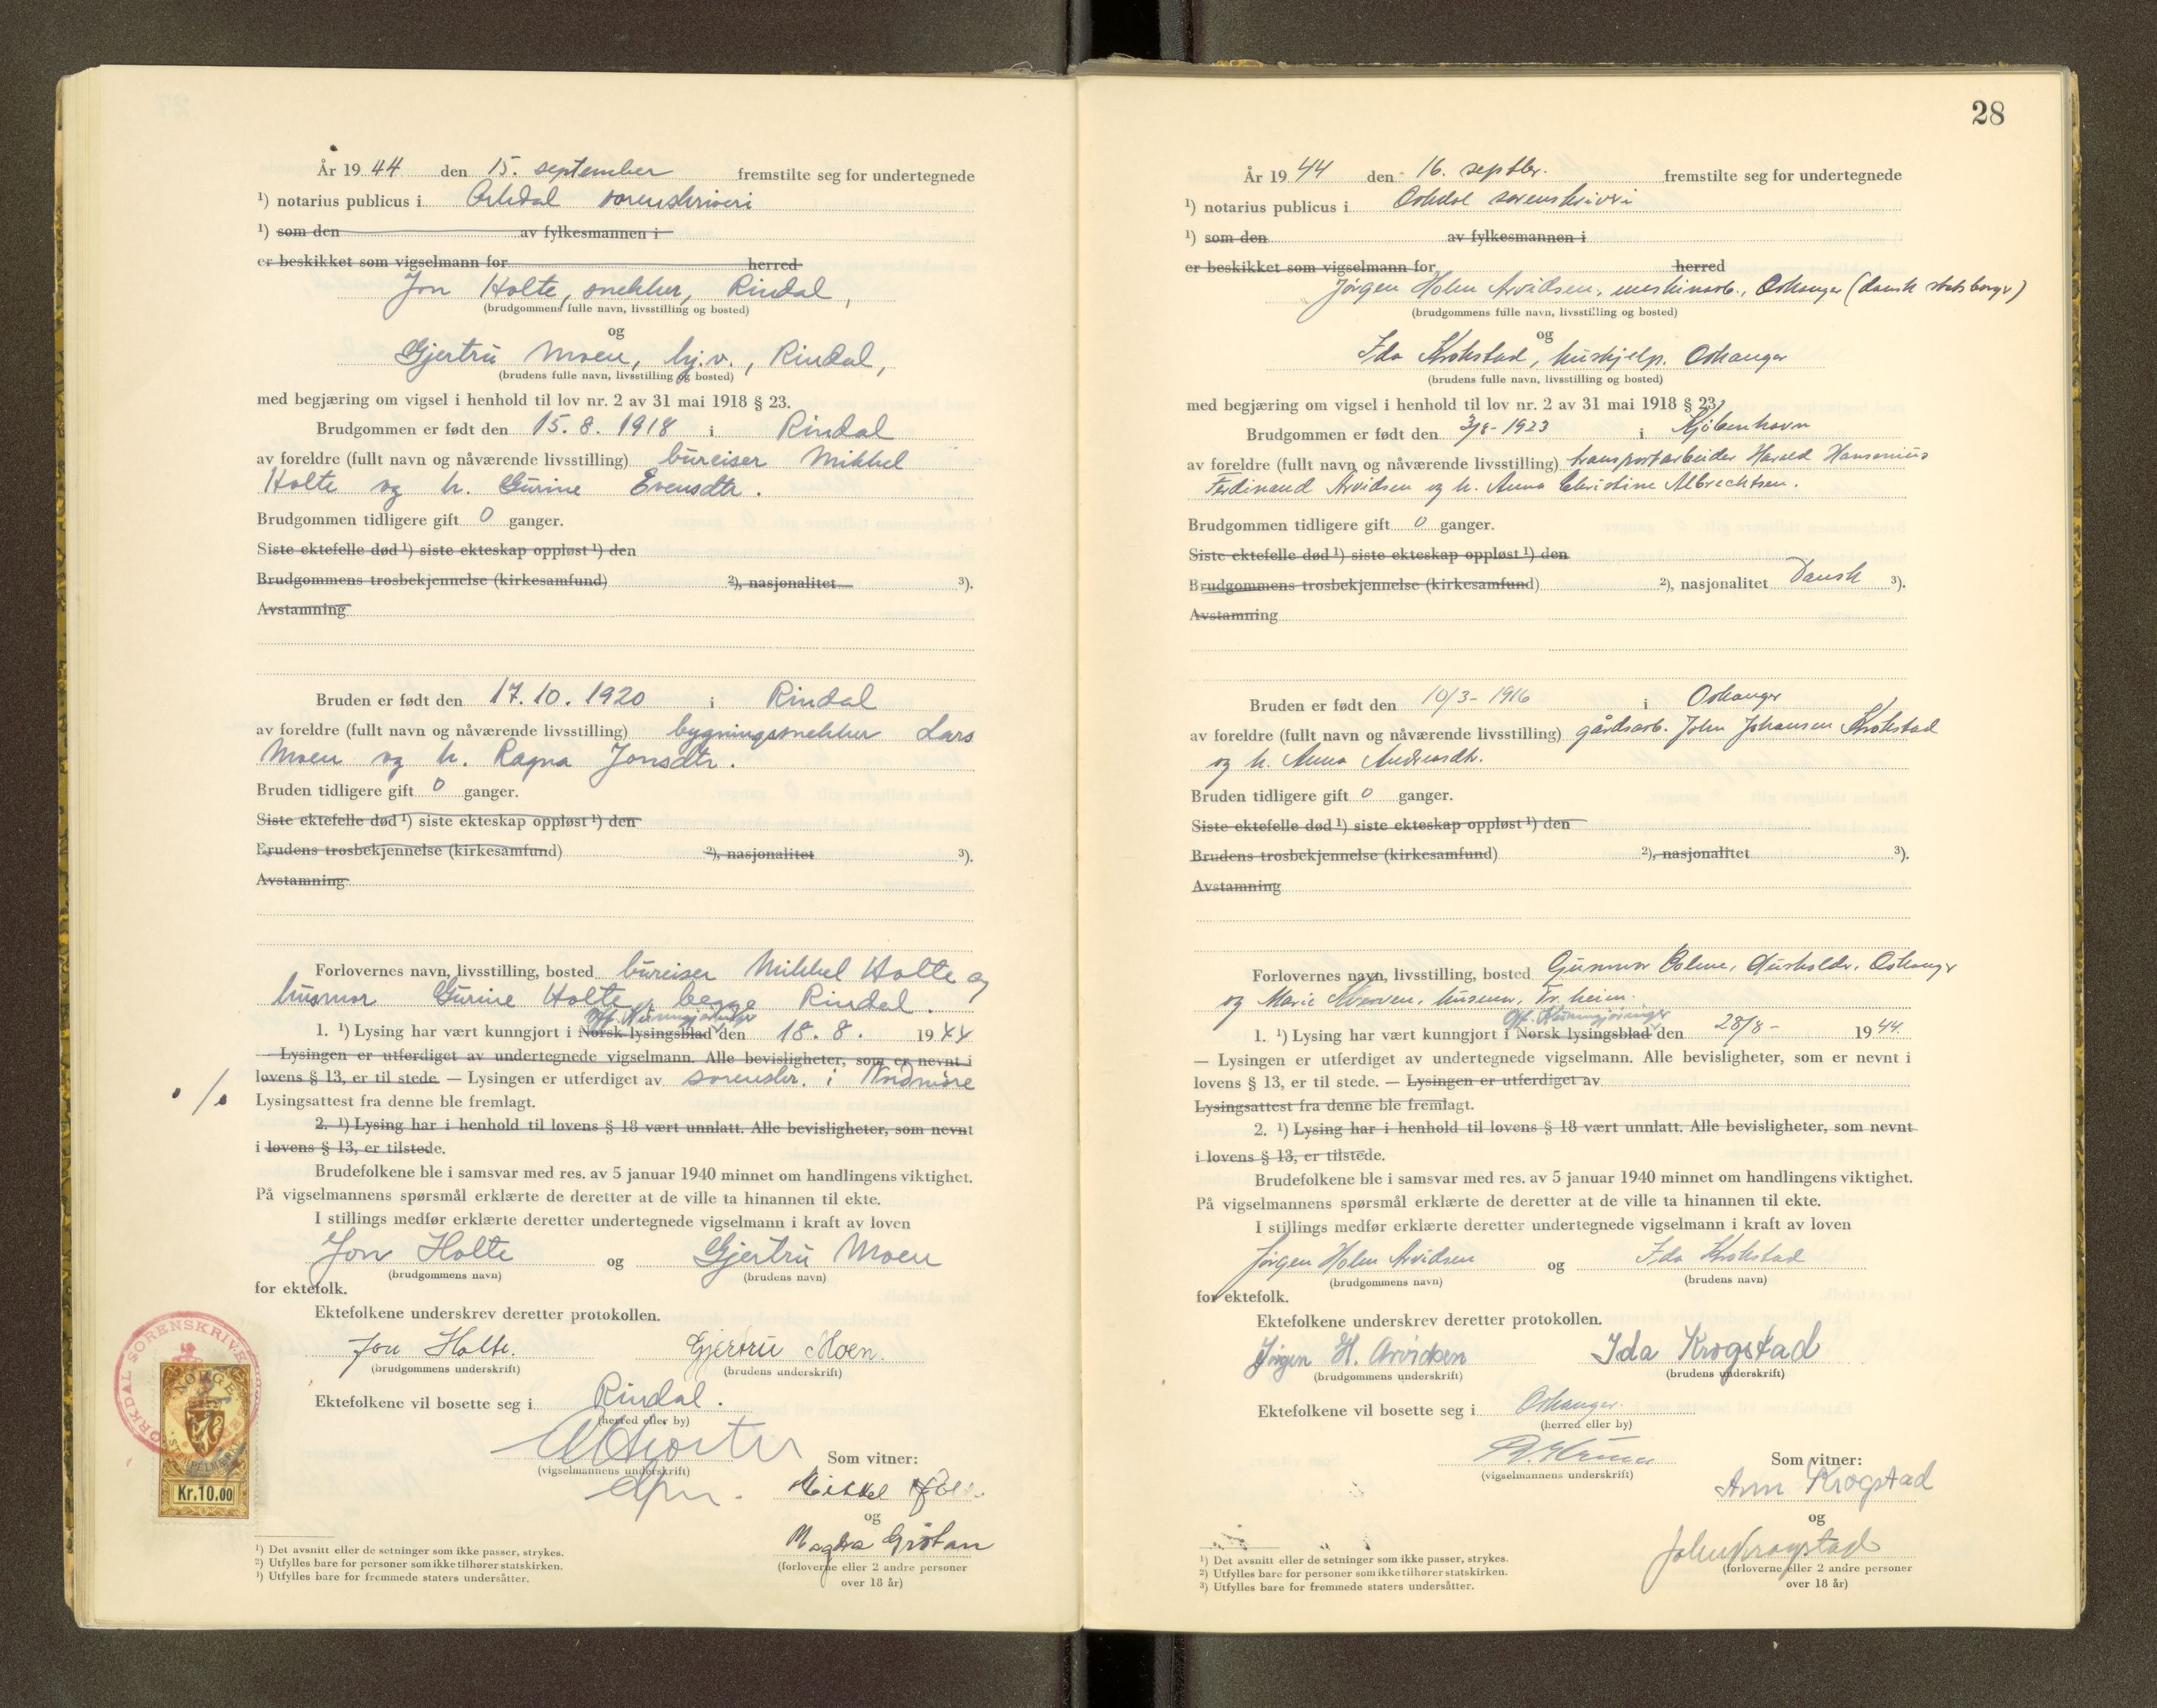 År 19 44 den 15. september fremstilte seg for undertegnede
¹) notarius publicus i Orkdal sorenskriveri
¹) som den av fylkesmannen i
er beskikket som vigselmann for herred
Jon Holte, snekker, Rindal,
(brudgommens fulle navn, livsstilling og bosted)
og
Gjertru Moen, hj.v., Rindal,
(brudens fulle navn, livsstilling og bosted)
med begjæring om vigsel i henhold til lov nr. 2 av 31 mai 1918 § 23.
Brudgommen er født den 15. 8. 1918 i Rindal
av foreldre (fullt navn og nåværende livsstilling) bureiser Mikkel
Holte og h. Gurine Evensdtr.
Brudgommen tidligere gift 0 ganger.
Siste ektefelle død ¹) siste ekteskap oppløst ¹) den
Brudgommens trosbekjennelse (kirkesamfund) ²), nasjonalitet ³).
Avstamning
Bruden er født den 17. 10. 1920 i Rindal
av foreldre (fullt navn og nåværende livsstilling) bygningssnekker Lars
Moen og h. Ragna Jonsdtr.
Bruden tidligere gift 0 ganger.
Siste ektefelle død ¹) siste ekteskap oppløst ¹) den
Brudens trosbekjennelse (kirkesamfund) ²), nasjonalitet ³).
Avstamning
Forlovernes navn, livsstilling, bosted bureiser Mikkel Holte og
husmor Gurine Holte, begge Rindal.
Off. Kunngjøringer
1. ¹) Lysing har vært kunngjort i Norsk lysingsblad den 18. 8. 19 44
— Lysingen er utferdiget av undertegnede vigselmann. Alle bevisligheter, som er nevnt i
lovens § 13, er til stede. — Lysingen er utferdiget av sorenskr. i Nordmøre
Lysingsattest fra denne ble fremlagt.
2. ¹) Lysing har i henhold til lovens § 18 vært unnlatt. Alle bevisligheter, som nevnt
i lovens § 13, er tilstede.
Brudefolkene ble i samsvar med res. av 5 januar 1940 minnet om handlingens viktighet.
På vigselmannens spørsmål erklærte de deretter at de ville ta hinannen til ekte.
I stillings medfør erklærte deretter undertegnede vigselmann i kraft av loven
Jon Holte og Gjertru Moen
(brudgommens navn) (brudens navn)
for ektefolk.
Ektefolkene underskrev deretter protokollen.
Jon Holte. Gjertru Moen.
(brudgommens underskrift) (brudens underskrift)
Ektefolkene vil bosette seg i Rindal.
(herred eller by)
Som vitner:
(vigselmannens underskrift)
Mikkel
og
Magda Grötan
(forloverne eller 2 andre personer
over 18 år)
ORKDAL SORENSKRIVE
NORGE
STEMPELMERKE
Kr.10.00
¹) Det avsnitt eller de setninger som ikke passer, strykes.
²) Utfylles bare for personer som ikke tilhører statskirken.
³) Utfylles bare for fremmede staters undersåtter.
28
År 19 44 den 16. septbr. fremstilte seg for undertegnede
¹) notarius publicus i Orkdal sorenskriveri
¹) som den av fylkesmannen i
er beskikket som vigselmann for herred
Jørgen Holm Arvidsen, maskinarb., Orkanger (dansk statsborger)
(brudgommens fulle navn, livsstilling og bosted)
og
Ida Krokstad, hushjelp. Orkanger
(brudens fulle navn, livsstilling og bosted)
med begjæring om vigsel i henhold til lov nr. 2 av 31 mai 1918 § 23.
Brudgommen er født den 3/8-1923 i Kjöbenhavn
av foreldre (fullt navn og nåværende livsstilling) transportarbeider Harald Hansenius
Ferdinand Arvidsen og h. Anna Christine Albrechtsen.
Brudgommen tidligere gift 0 ganger.
Siste ektefelle død ¹) siste ekteskap oppløst ¹) den
Brudgommens trosbekjennelse (kirkesamfund) ²), nasjonalitet Dansk ³).
Avstamning
Bruden er født den 10/3-1916 i Orkanger
av foreldre (fullt navn og nåværende livsstilling) gårdsarb. John Johansen Krokstad
og h. Anna Andreasdtr.
Bruden tidligere gift 0 ganger.
Siste ektefelle død ¹) siste ekteskap oppløst ¹) den
Brudens trosbekjennelse (kirkesamfund) ²), nasjonalitet ³).
Avstamning
Forlovernes navn, livsstilling, bosted Gunnar Bolme, Orkanger
og Marie husmor, Tr.heim.
Off. Kunngjøringer
1. ¹) Lysing har vært kunngjort i Norsk lysingsblad den 28/8- 19 44.
— Lysingen er utferdiget av undertegnede vigselmann. Alle bevisligheter, som er nevnt i
lovens § 13, er til stede. — Lysingen er utferdiget av
Lysingsattest fra denne ble fremlagt.
2. ¹) Lysing har i henhold til lovens § 18 vært unnlatt. Alle bevisligheter, som nevnt
i lovens § 13, er tilstede.
Brudefolkene ble i samsvar med res. av 5 januar 1940 minnet om handlingens viktighet.
På vigselmannens spørsmål erklærte de deretter at de ville ta hinannen til ekte.
I stillings medfør erklærte deretter undertegnede vigselmann i kraft av loven
Jørgen Holm Arvidsen og Ida Krokstad
(brudgommens navn) (brudens navn)
for ektefolk.
Ektefolkene underskrev deretter protokollen.
Jørgen H. Arvidsen Ida Krogstad
(brudgommens underskrift) (brudens underskrift)
Ektefolkene vil bosette seg i Orkanger.
(herred eller by)
Som vitner:
(vigselmannens underskrift)
Ann Krogstad
og
John Krogstad
(forloverne eller 2 andre personer
over 18 år)
¹) Det avsnitt eller de setninger som ikke passer, strykes.
²) Utfylles bare for personer som ikke tilhører statskirken.
³) Utfylles bare for fremmede staters undersåtter.